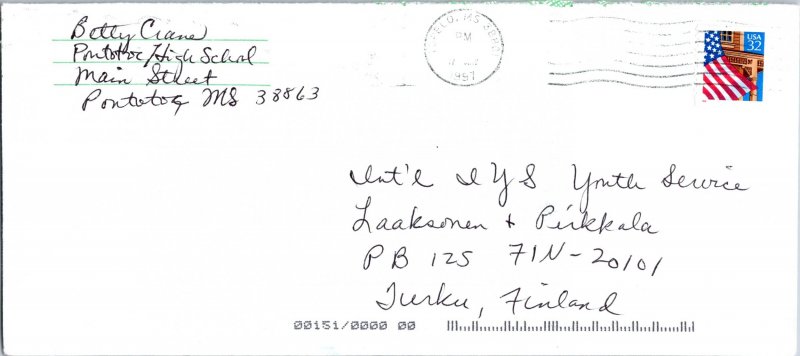 Betty Crane
Pontotoc High School
Main Street
Pontotoc, MS 38863
ELO, MS 388
PM
1997
USA
32
Int'l I Y S Youth Service
Laaksonen + Pirkkala
PB 125 FIN-20101
Turku, Finland
00151/0000 00